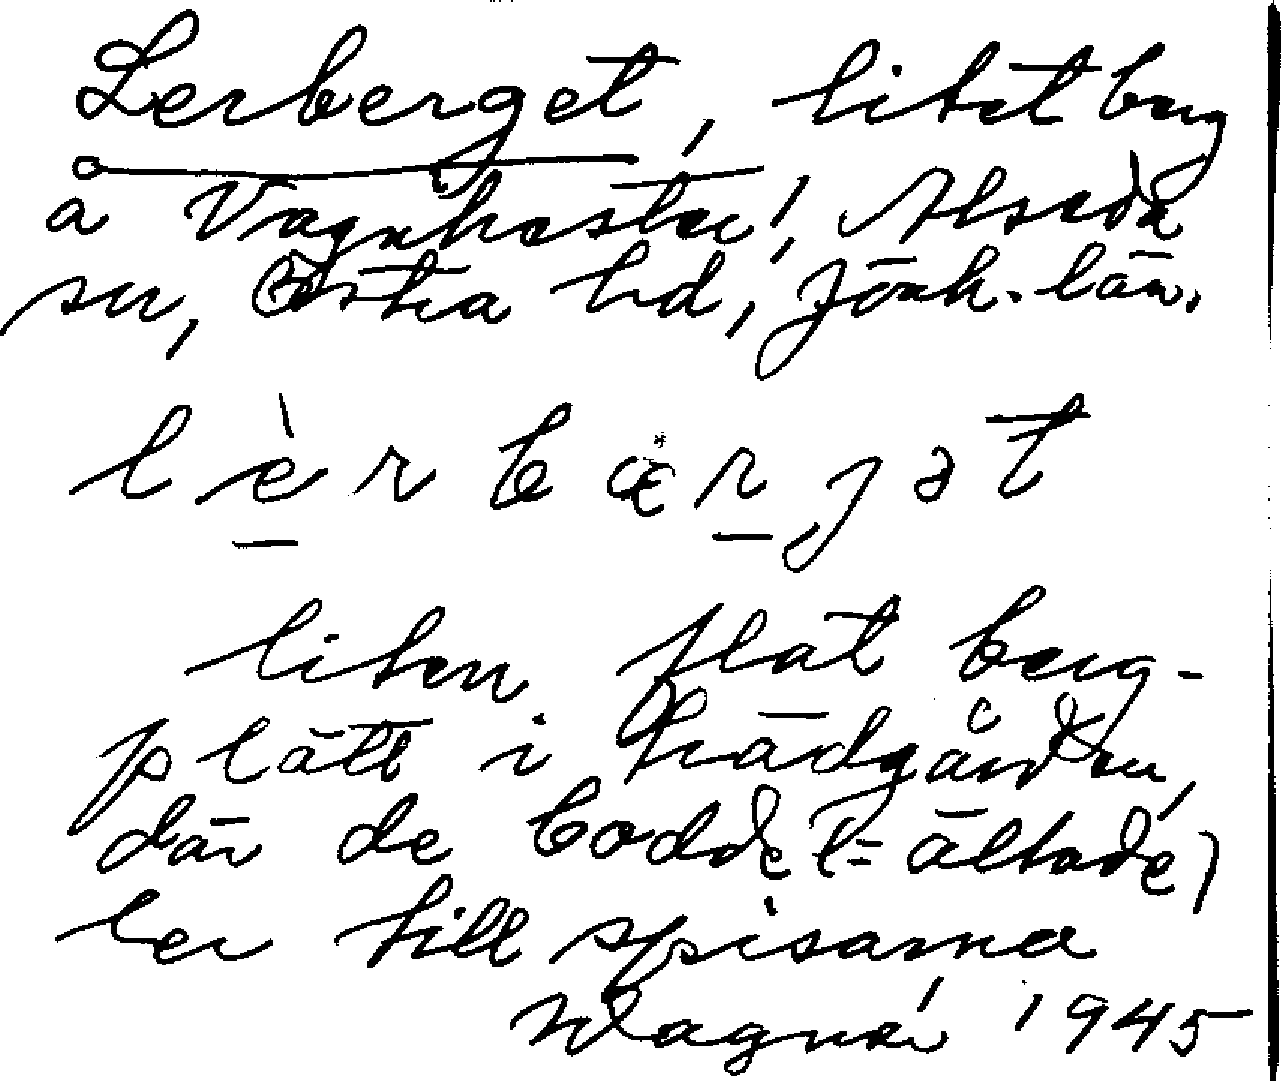 Lerberget, litet berg
å Vagnhester, Alseda
sn, Östra hd, Jönk. län.
lèrbærjət
liten flat berg-
plätt i trädgården,
där de bodde (= ältade)
ler till spisarna
Wagnér 1945